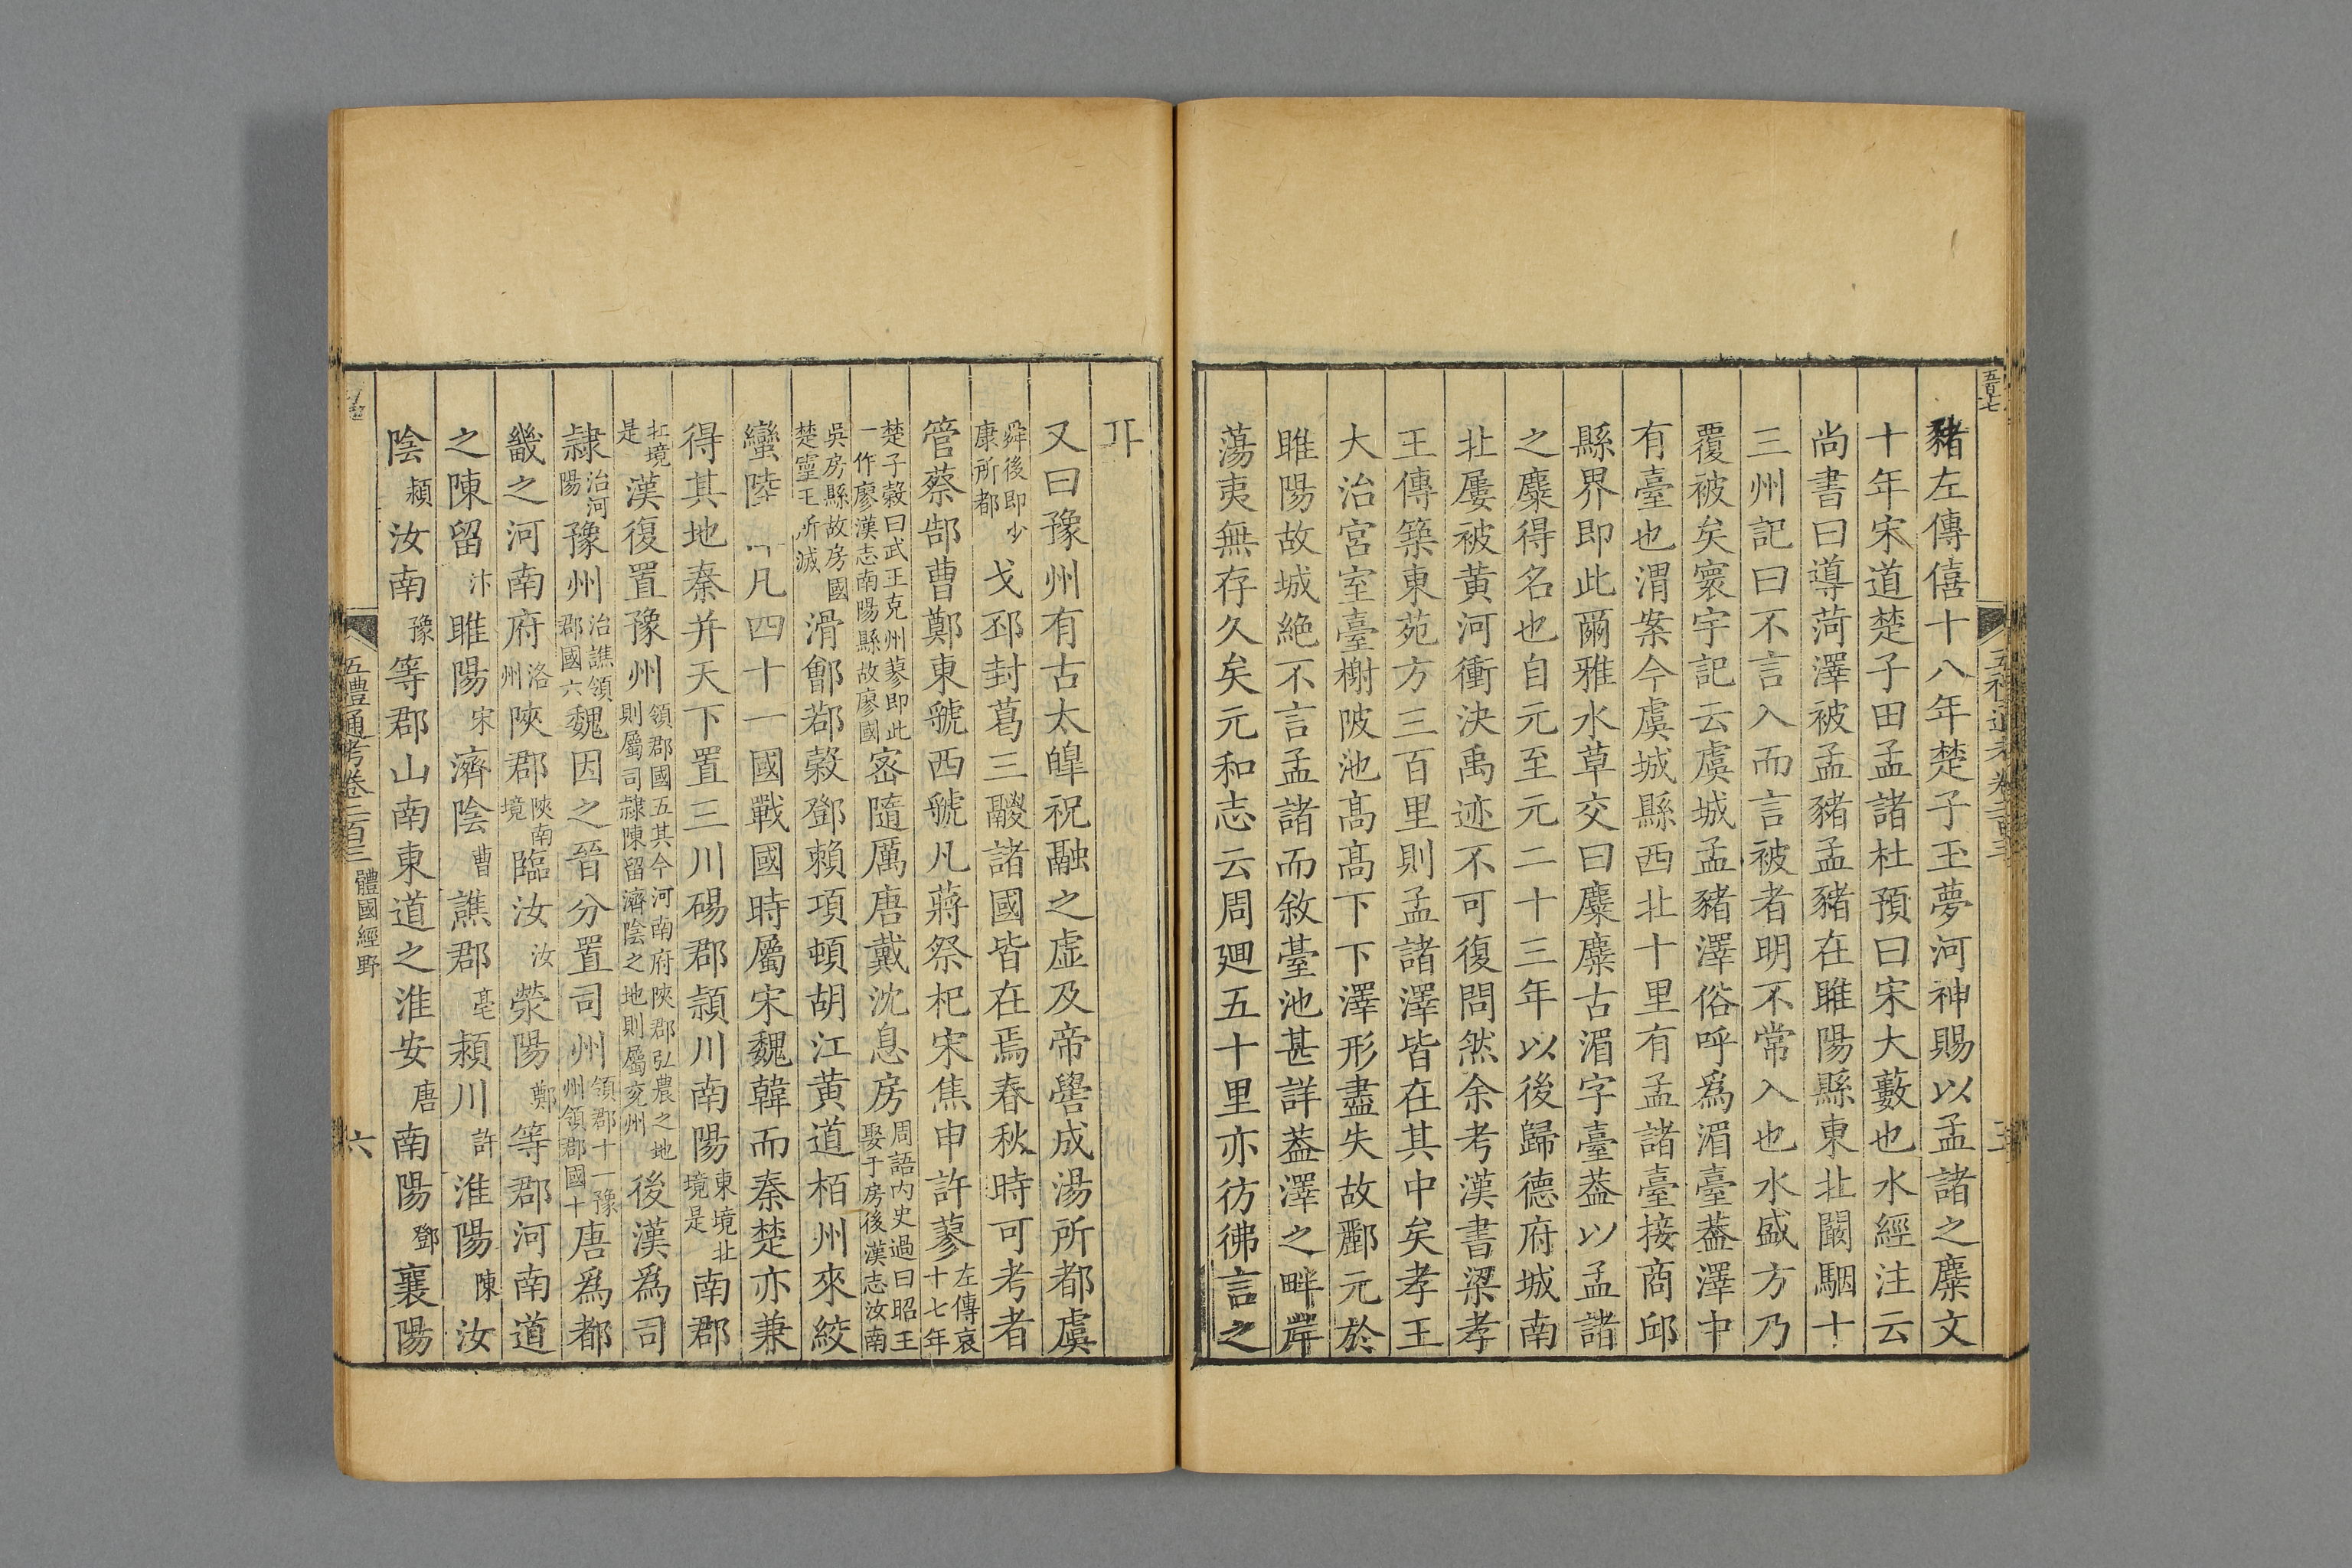 五百七
豬左傳僖十八年楚子玉夢河神賜以孟諸之麋文
十年宋道楚子田孟諸杜預曰宋大藪也水經注云
尚書曰導菏澤被孟豬孟豬在睢陽縣東北闞駰十
三州記曰不言入而言被者明不常入也水盛方乃
覆被矣寰宇記云虞城孟豬澤俗呼為湄臺蓋澤中
有臺也渭案今虞城縣西北十里有孟諸臺接商邱
縣界即此爾雅水草交曰麋麋古湄字臺蓋以孟諸
之麋得名也自元至元二十三年以後歸德府城南
北屢被黃河衝決禹迹不可復問然余考漢書梁孝
王傳築東苑方三百里則孟諸澤皆在其中矣孝王
大治宮室臺榭陂池高高下下澤形盡失故酈元於
睢陽故城絶不言孟諸而敘臺池甚詳蓋澤之畔岸
蕩夷無存久矣元和志云周廻五十里亦彷彿言之
耳
又曰豫州有古太皞祝融之虛及帝嚳成湯所都虞
舜後即少康所都戈邳封葛三鬷諸國皆在焉春秋時可考者
管蔡郜曹鄭東虢西虢凡蔣祭杞宋焦申許蓼左傳哀十七年
楚子穀曰武王克州蓼即此一作廖漢志南陽縣故廖國密隨厲唐戴沈息房周語內史過曰昭王娶于房後漢志汝南
吳房縣故房國楚靈王所滅滑鄶鄀穀鄧賴項頓胡江黃道栢州來絞
蠻陸凡四十一國戰國時屬宋魏韓而秦楚亦兼
得其地秦并天下置三川碭郡潁川南陽東境北境是南郡
北境是漢復置豫州領郡國五其今河南府陝郡弘農之地則屬司隸陳留濟陰之地則屬兗州後漢為司
隸治河陽豫州治譙領郡國六魏因之晉分置司州領郡十一豫州領郡國十唐為都
畿之河南府洛州陝郡陝南境臨汝汝滎陽鄭等郡河南道
之陳留汴睢陽宋濟陰曹譙郡亳潁川許淮陽陳汝
陰潁汝南豫等郡山南東道之淮安唐南陽鄧襄陽
五禮通考卷二百三 體國經野 六